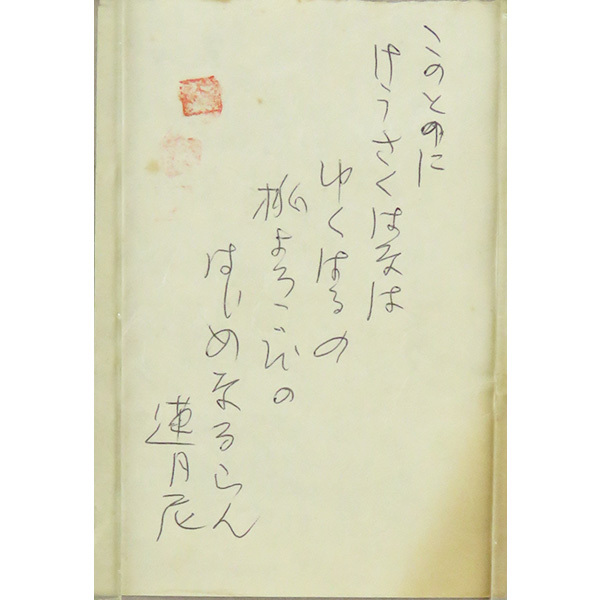 このとのに
けうさくはなは
ゆくはるの
よろこびの
はじめなるらん
蓮月尼